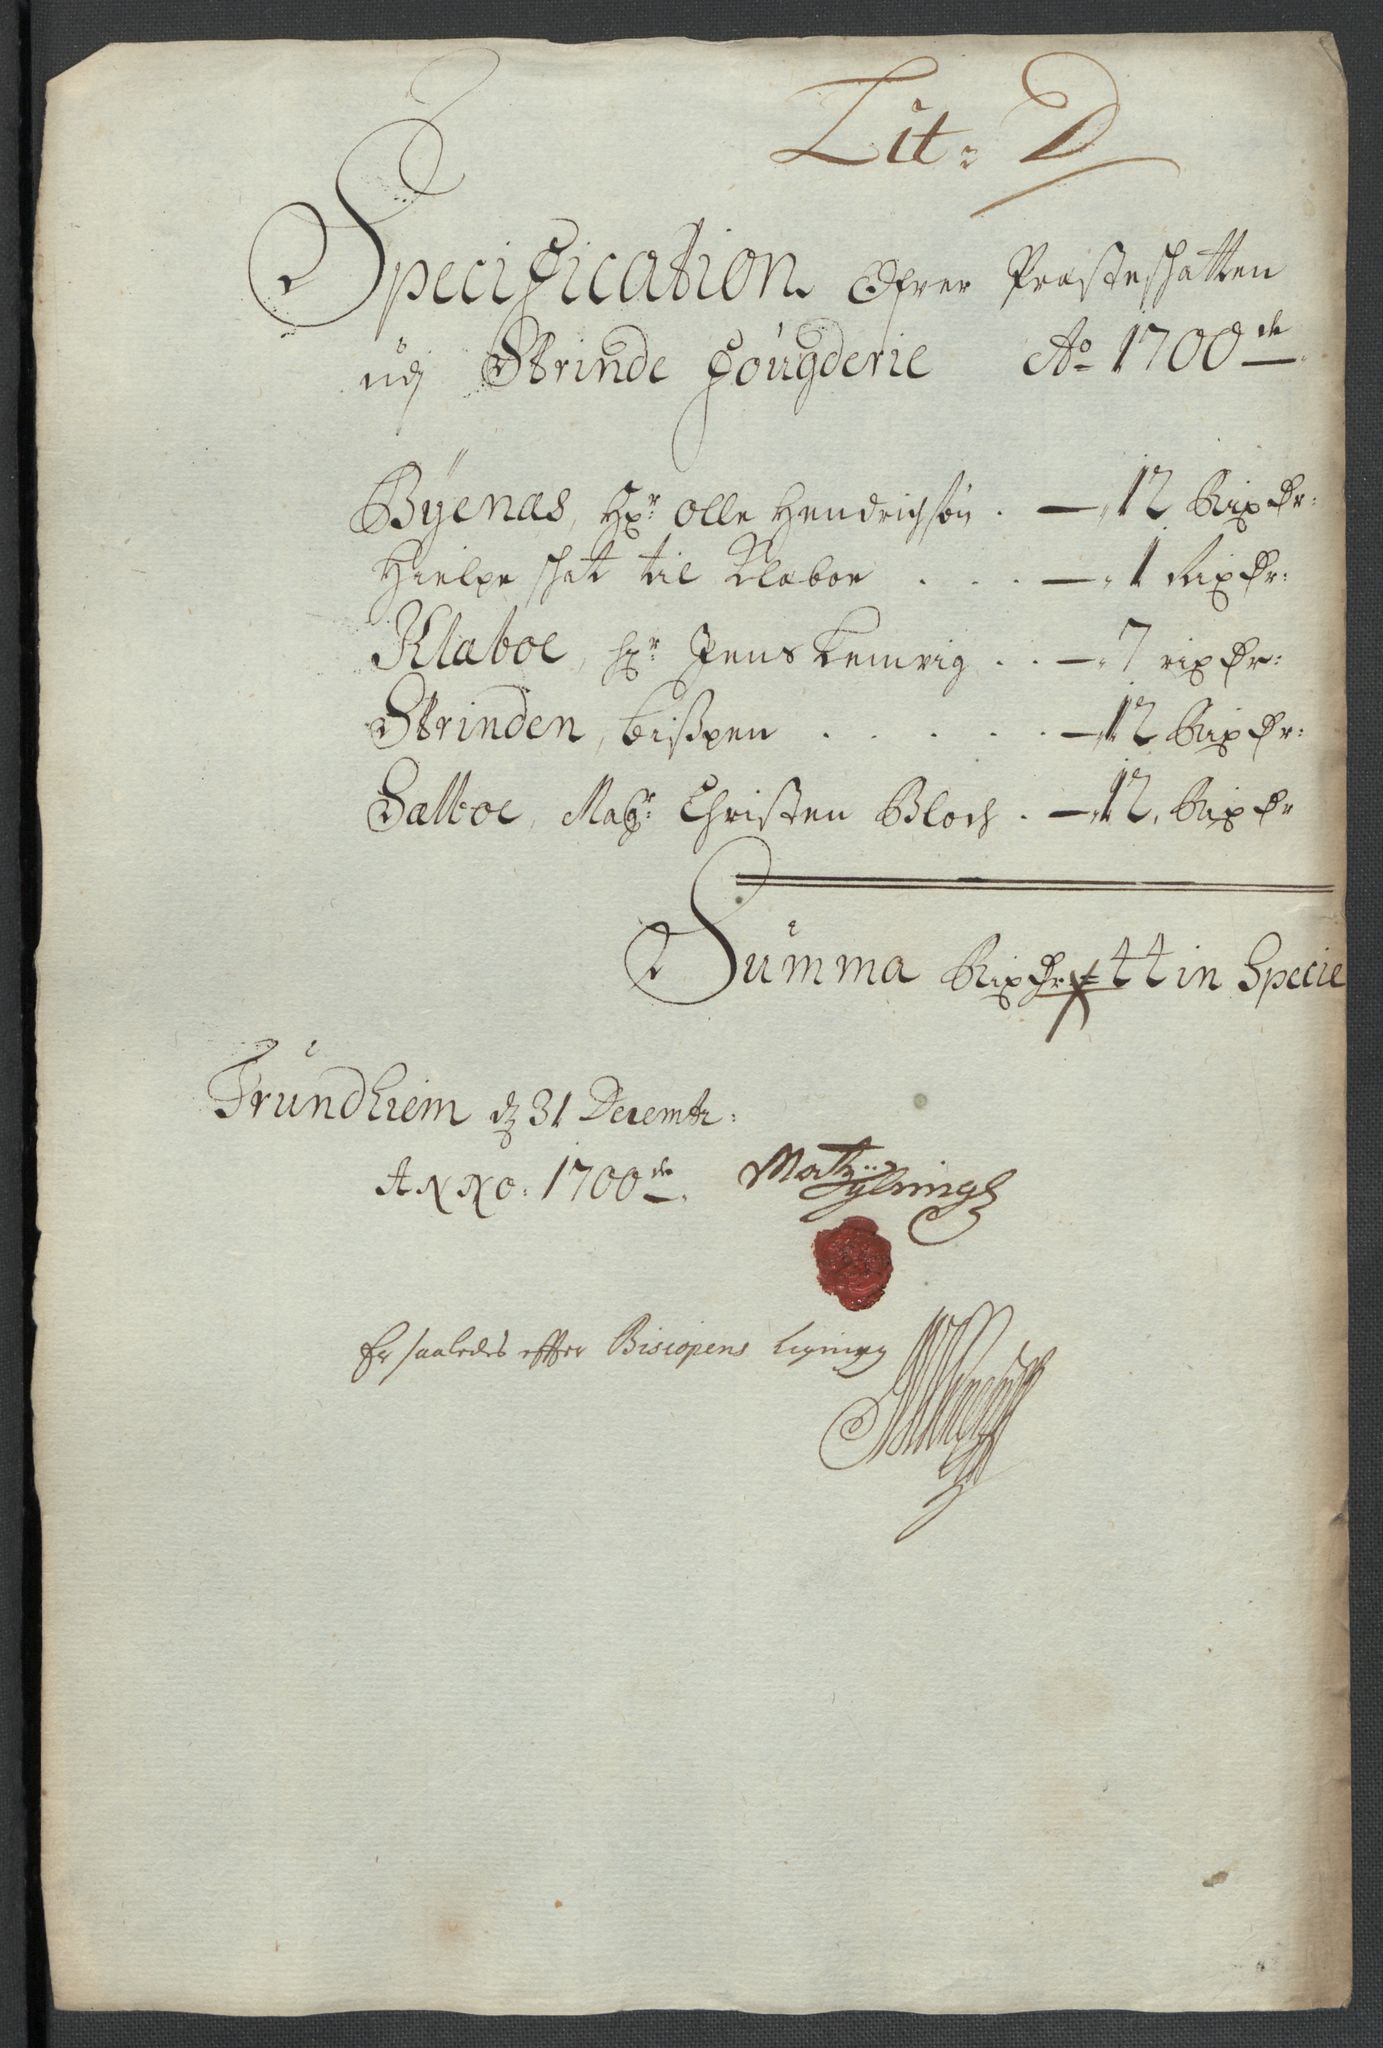 Lit: D
Specification Ofver Præsteschatten
udj Strinde fougderie Ao 1700de
Byenæs, Hr: Olle Hendrichsøn . — 12 Rixdr:
Hielpe schat til Klæboe . . . — 1 Rixdr:
Klæboe, Hr: Jens Lemvig . . — 7 rixdr:
Strinden, bispen . . . . . — 12 Rixdr:
Sælboe, Magr: Christen Bloch . — 12 Rixdr
Summa Rixdr 44 in Specie
Trundhiem d 31 Decembr:
Anno: 1700de.
Er saaledes effter Biscopens Ligning